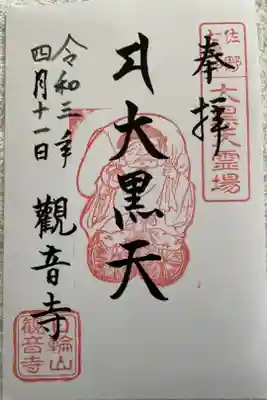 奉拝
佐野
大黒天霊場
大黒天
令和三年
四月十一日
觀音寺
輪山
観音寺